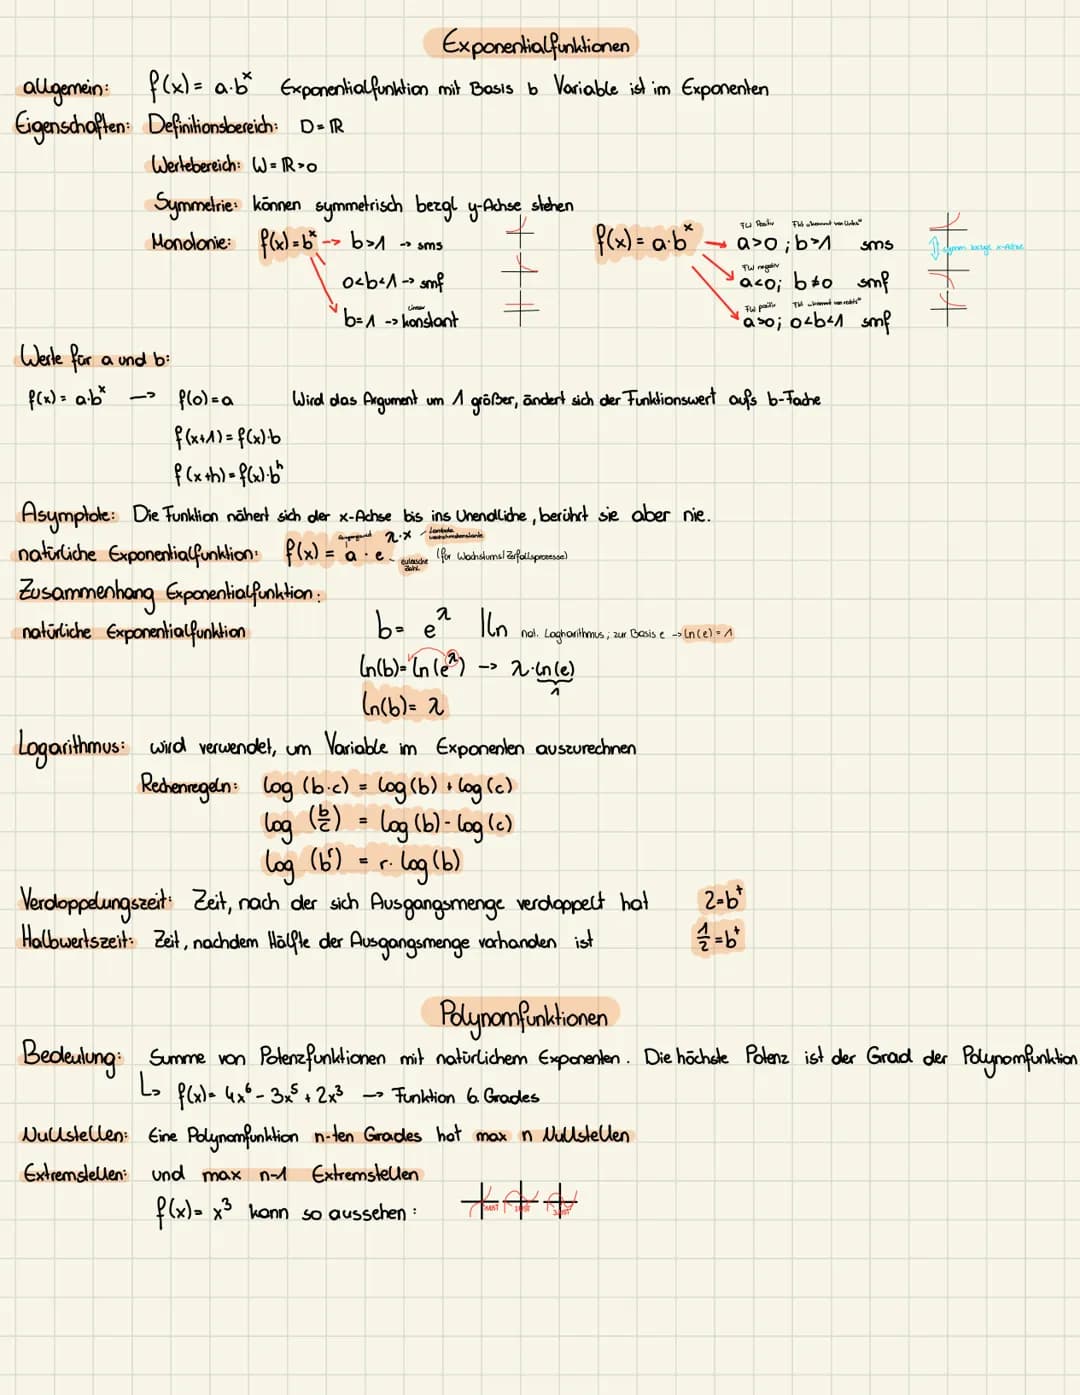 Exponentialfunktionen
allgemein: f(x) = a·b^x Exponentialfunktion mit Basis b Variable ist im Exponenten
Eigenschaften: Definitionsbereich: D = ℝ
Wertebereich: W = ℝ>0
Symmetrie: können symmetrisch bezgl y-Achse stehen
Monotonie: f(x) = b^x -> b>1 -> sms
0<b<1 -> smf
Linear
b=1 -> konstant
f(x) = a·b^x
FW Positiv FW "kommt von links"
a>0 ; b>1 sms
symm. bezgl x-Achse
FW negativ
a<0; b≠0 smf
FW positiv FW "kommt von rechts"
a>0; 0<b<1 smf
Werte für a und b:
f(x) = a·b^x -> f(0) = a Wird das Argument um 1 größer, ändert sich der Funktionswert aufs b-Fache
f(x+1) = f(x)·b
f(x+h) = f(x)·b^h
Asymptote: Die Funktion nähert sich der x-Achse bis ins Unendliche, berührt sie aber nie.
natürliche Exponentialfunktion: f(x) = a · e^λ·x (für Wachstums/Zerfallsprozesse)
Lambda
Wachstumskonstante
eulersche
Zahl
Zusammenhang Exponentialfunktion:
natürliche Exponentialfunktion b = e^λ |ln nat. Logharithmus; zur Basis e -> ln(e) = 1
ln(b) = ln(e^λ) -> λ·ln(e)
1
ln(b) = λ
Logarithmus: wird verwendet, um Variable im Exponenten auszurechnen
Rechenregeln: log (b·c) = log(b) + log(c)
log (b/c) = log(b) - log(c)
log (b^r) = r · log(b)
Verdoppelungszeit: Zeit, nach der sich Ausgangsmenge verdoppelt hat 2 = b^t
Halbwertszeit: Zeit, nachdem Hälfte der Ausgangsmenge vorhanden ist 1/2 = b^t
Polynomfunktionen
Bedeutung: Summe von Potenzfunktionen mit natürlichem Exponenten. Die höchste Potenz ist der Grad der Polynomfunktion
↳ f(x) = 4x^6 - 3x^5 + 2x^3 -> Funktion 6. Grades
Nullstellen: Eine Polynomfunktion n-ten Grades hat max n Nullstellen
Extremstellen: und max n-1 Extremstellen
f(x) = x^3 kann so aussehen: